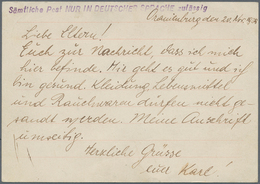 Sämtliche Post NUR IN DEUTSCHER SPRACHE zulässig
Oranienburg den 20. Nov.
Liebe Eltern!
Euch zur Nachricht, dass ich mich
hier befinde. Mir geht es gut und ich
bin gesund. Kleidung Lebensmittel
und Rauchwaren dürfen nicht ge-
sandt werden. Meine Anschrift
umseitig.
Herzliche Grüsse
euer Karl!